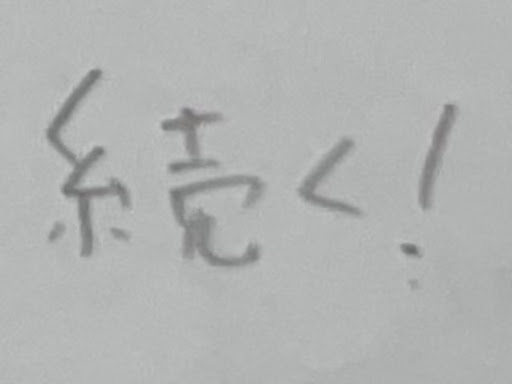 続く!